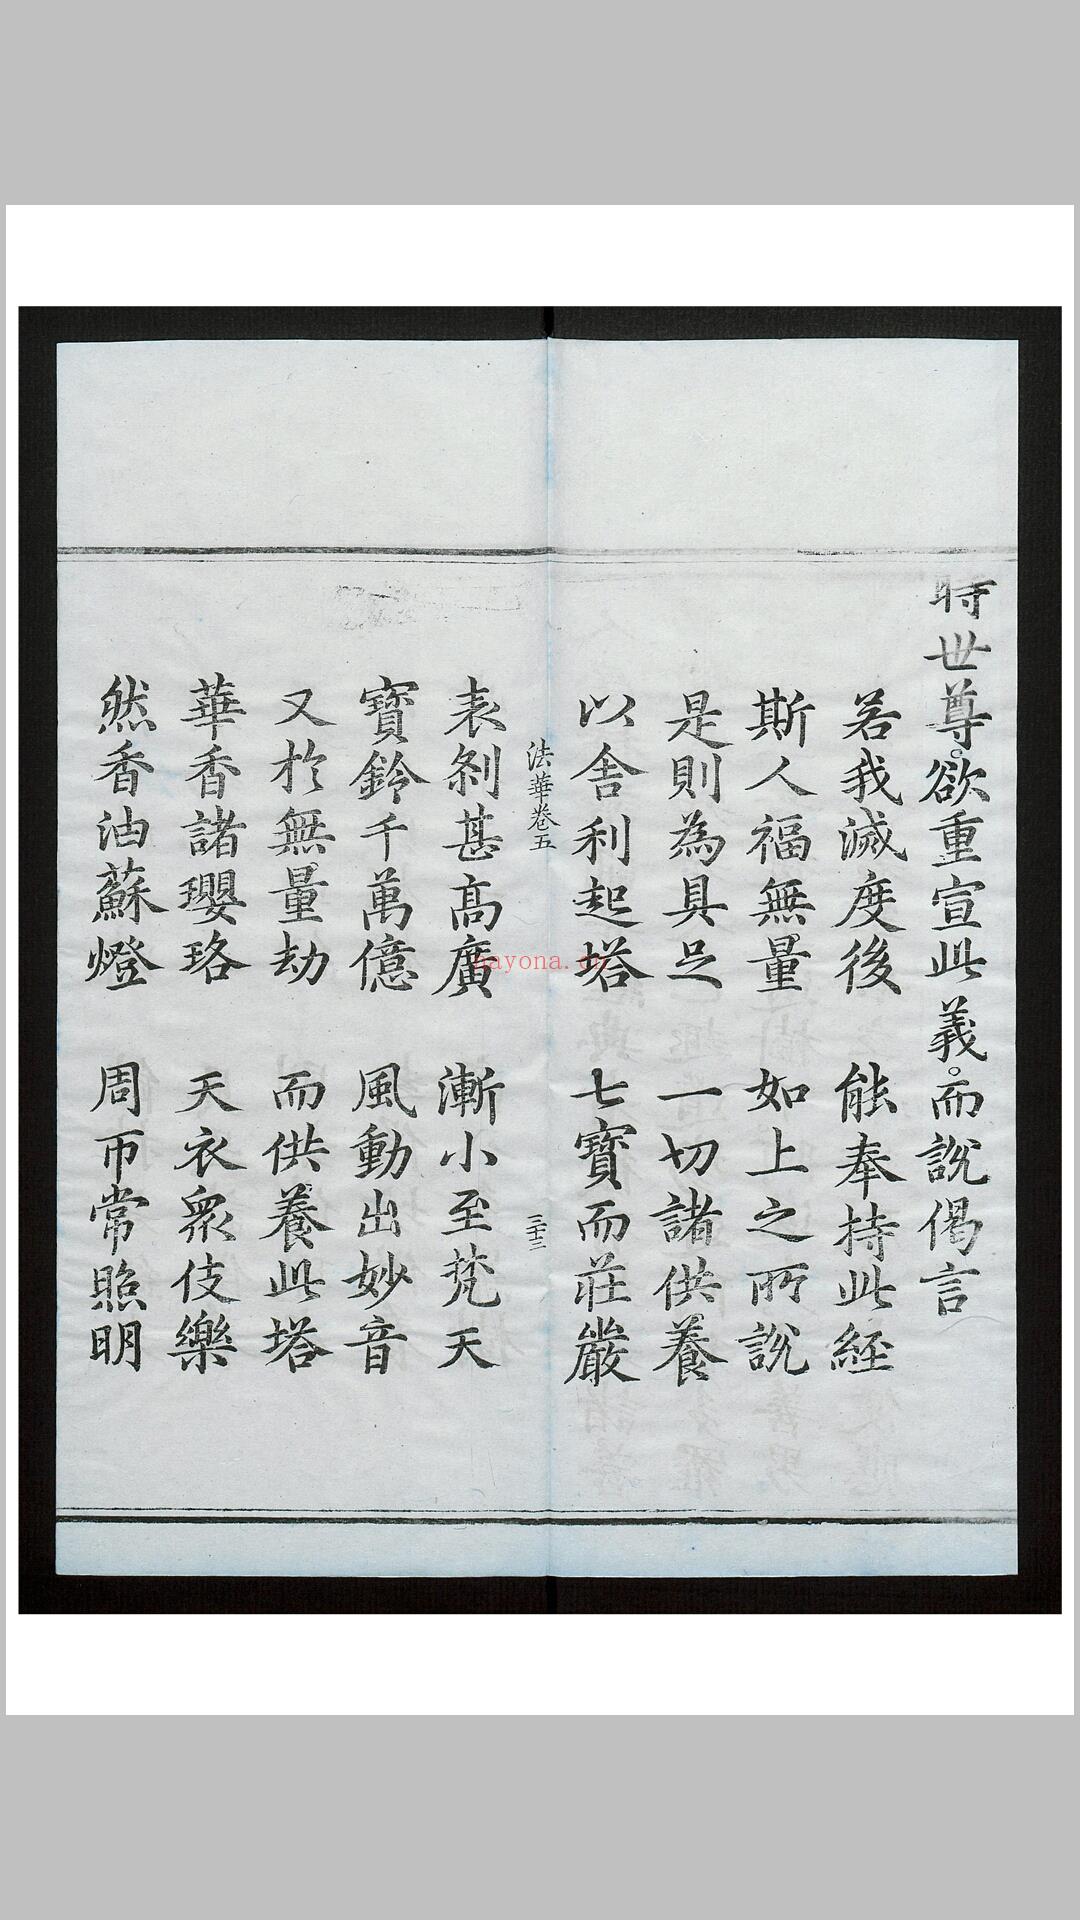 時世尊。欲重宣此義。而說偈言
若我滅度後　能奉持此經
斯人福無量　如上之所說
是則為具足　一切諸供養
以舍利起塔　七寶而莊嚴
法華卷五　三十二
表剎甚高廣　漸小至梵天
寶鈴千萬億　風動出妙音
又於無量劫　而供養此塔
華香諸瓔珞　天衣眾伎樂
然香油蘇燈　周帀常照明
nayona.cn